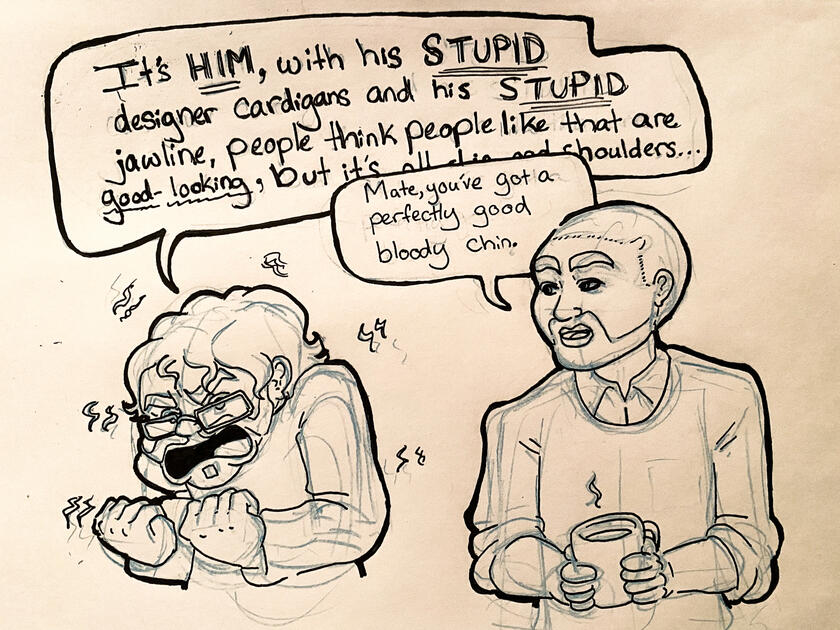 It's HIM, with his STUPID
designer cardigans and his STUPID
jawline, people think people like that are
good-looking, but it's all chin and shoulders...
Mate, you've got a
perfectly good
bloody chin.